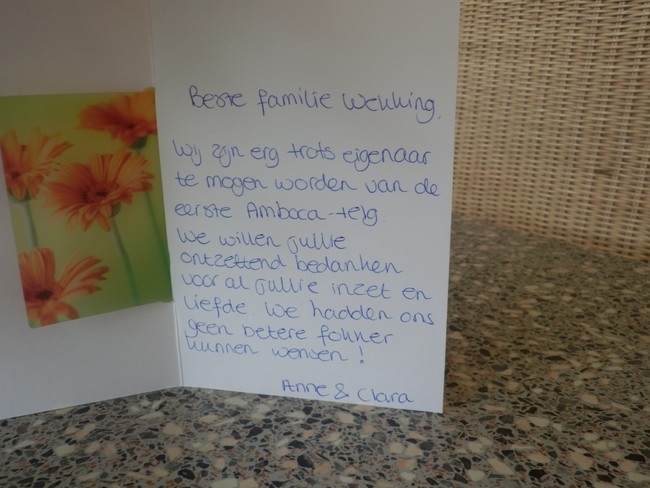 Beste familie Wekking,
Wij zijn erg trots eigenaar
te mogen worden van de
eerste Ambaca-telg.
We willen jullie
ontzettend bedanken
voor al jullie inzet en
liefde. We hadden ons
geen betere fokker
kunnen wensen!
Anne & Clara